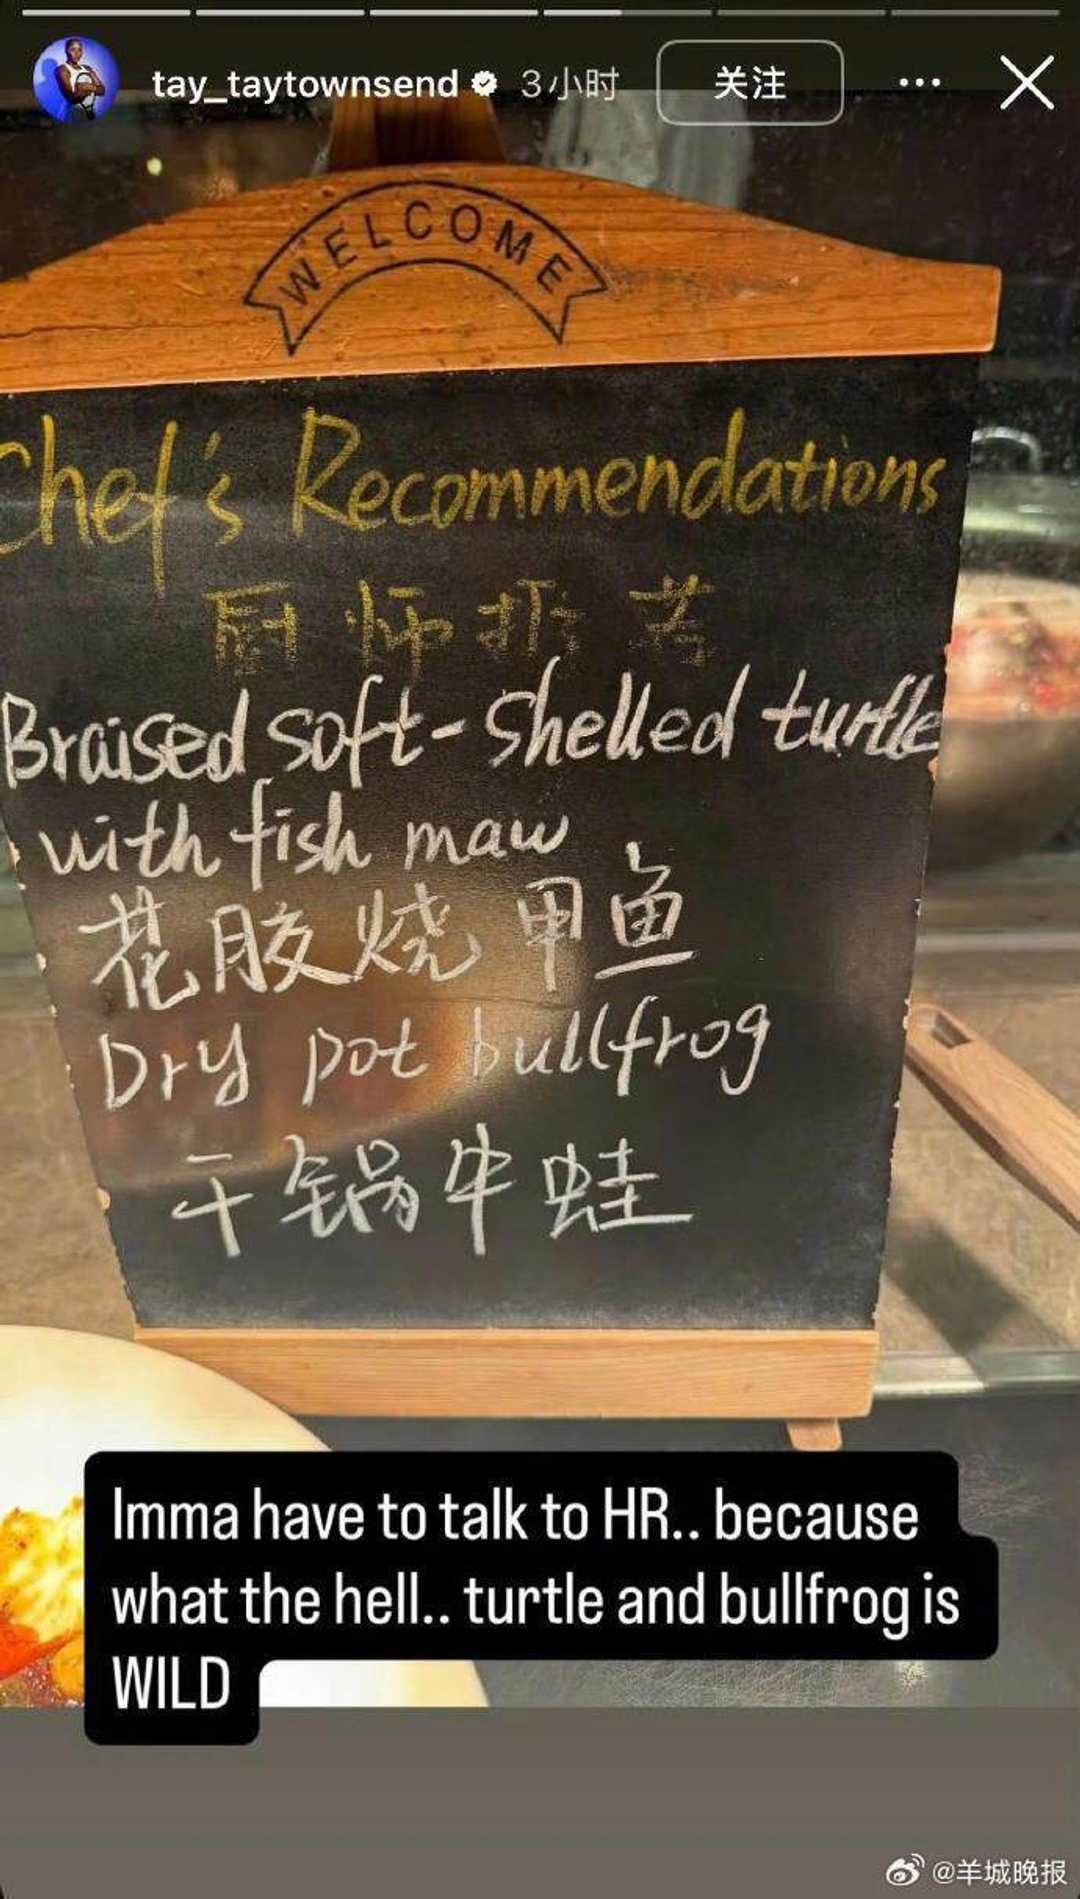 tay_taytownsend 3小时 关注
WELCOME
Chef's Recommendations
厨师推荐
Braised soft-shelled turtle
with fish maw
花胶烧甲鱼
Dry pot bullfrog
干锅牛蛙
Imma have to talk to HR.. because
what the hell.. turtle and bullfrog is
WILD
@羊城晚报